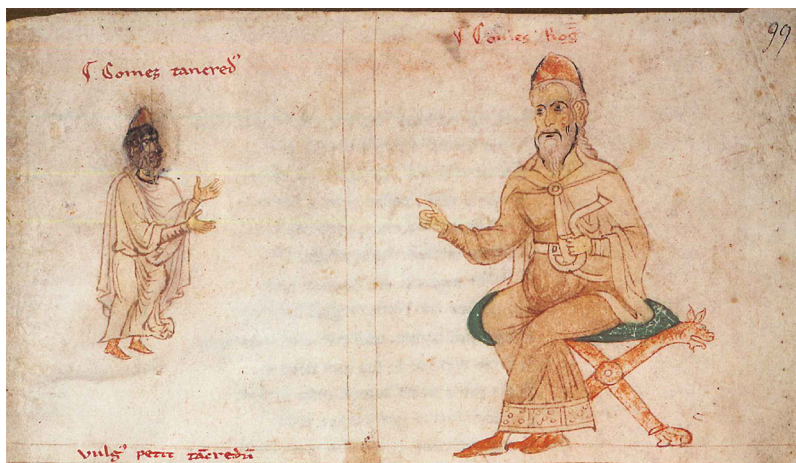 ¶ Comes tancred᾽
¶ Comes Rog᾽
99
vulg᾽ petit tācredū